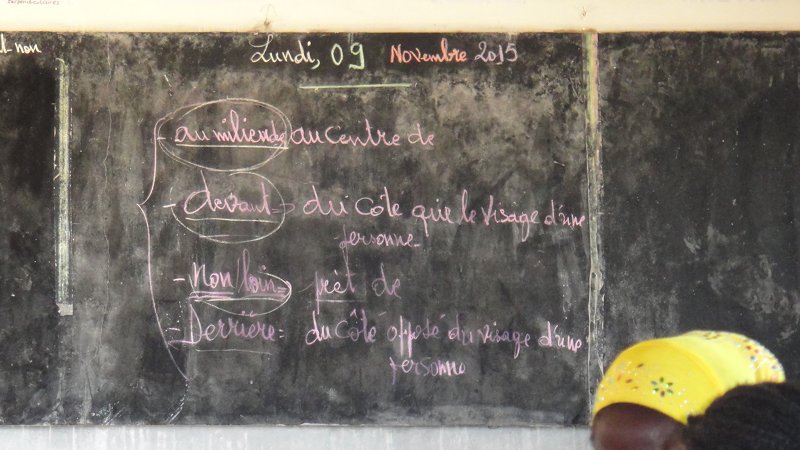 t non
Lundi, 09 Novembre 2015
- au milieu de au centre de
- devant = du côté que le visage d'une
personne
- Non loin prèt de
- Derrière = du côté opposé du visage d'une
personne